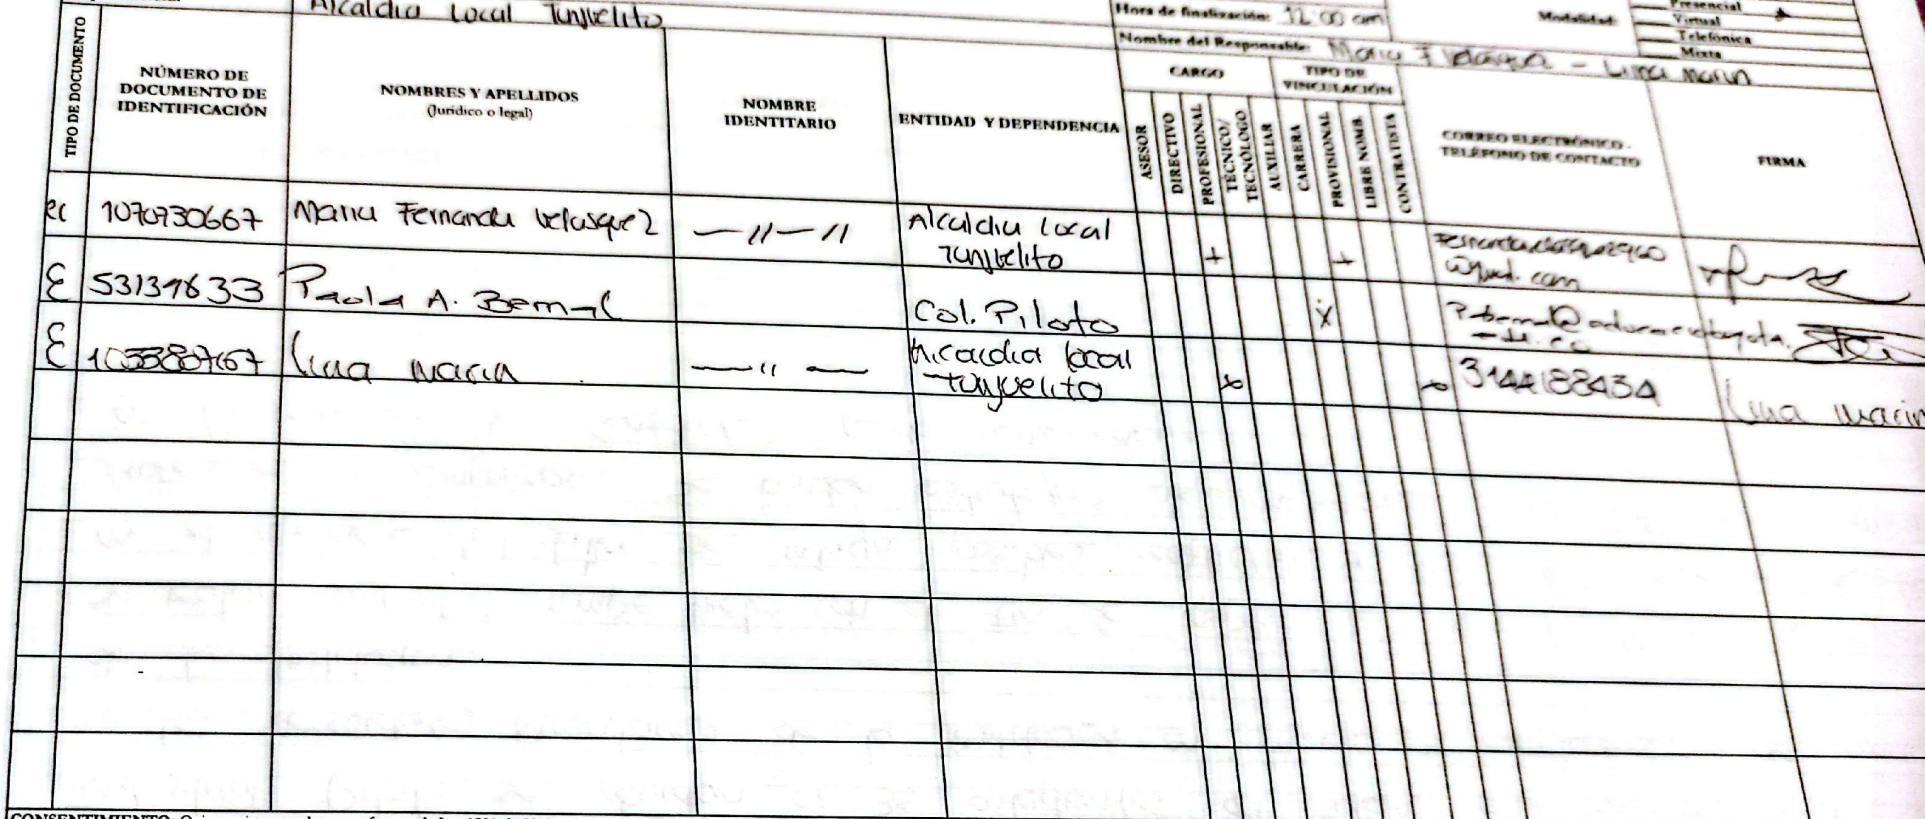 Alcaldia Local Tunjuelito
Hora de finalización: 12:00 am
Modalidad:
Presencial
Virtual
Telefónica
Mixta
Nombre del Responsable: Maria F Velasquez - Lina Marin
TIPO DE DOCUMENTO
NÚMERO DE DOCUMENTO DE IDENTIFICACIÓN
NOMBRES Y APELLIDOS
(Jurídico o legal)
NOMBRE IDENTITARIO
ENTIDAD Y DEPENDENCIA
CARGO
ASESOR
DIRECTIVO
PROFESIONAL
TÉCNICO/ TECNÓLOGO
AUXILIAR
TIPO DE VINCULACIÓN
CARRERA
PROVISIONAL
LIBRE NOMB.
CONTRATISTA
CORREO ELECTRÓNICO - TELÉFONO DE CONTACTO
FIRMA
cc 1070730667 Maria Fernanda Velasquez —//—// Alcaldia Local Tunjuelito + +
Paola A. Bernal Col. Piloto x
Lina Marin —"— Alcaldia local tunjuelito x x 3144188434 Lina Marin
CONSENTIMIENTO: